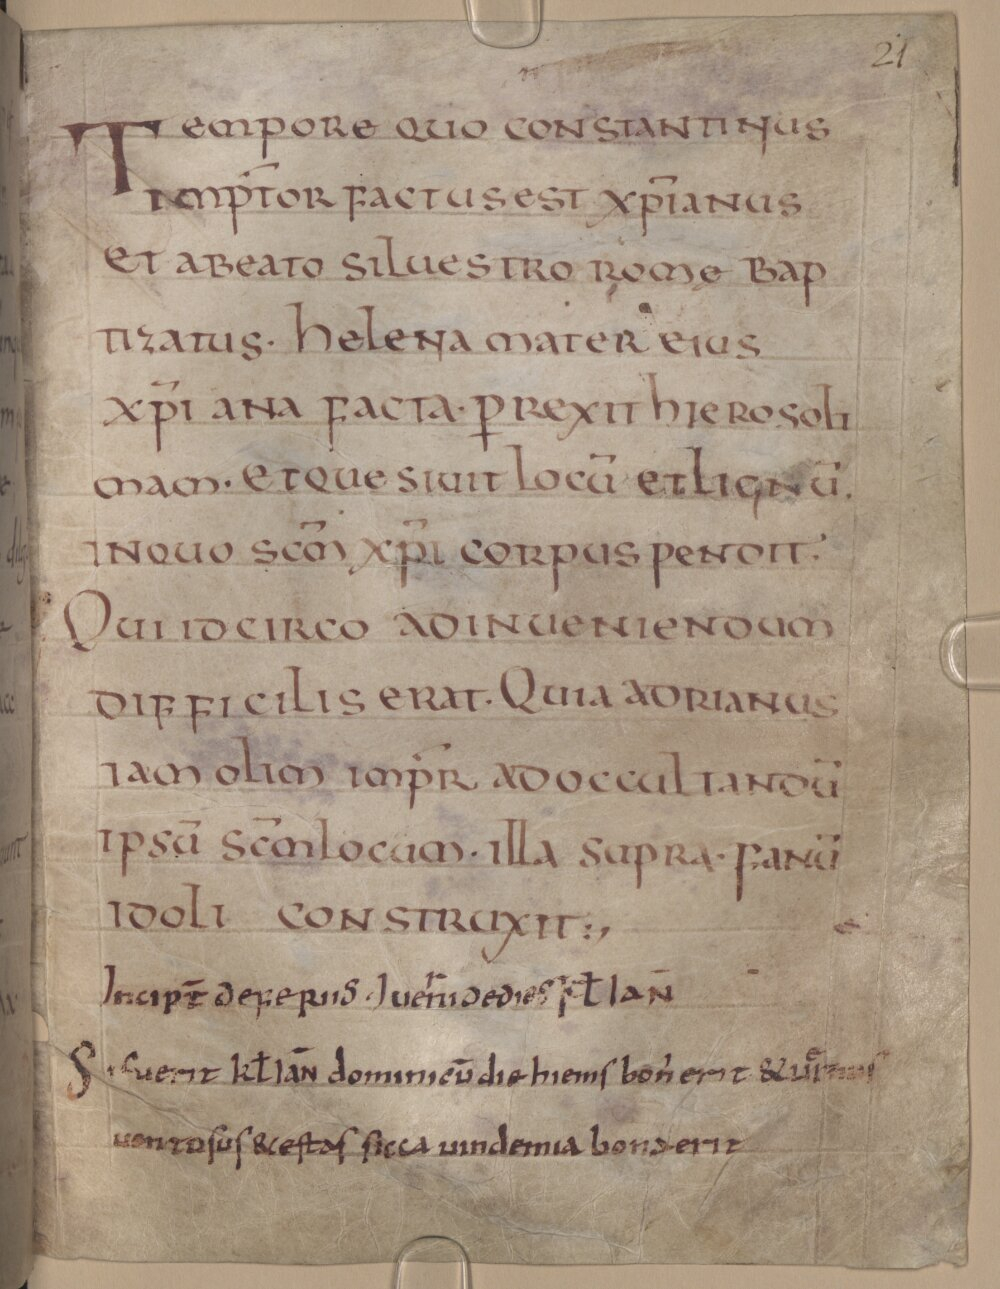 21
Tempore quo constantinus
imp̄tor factus est xp̄ianus
et a beato siluestro rome bap
tizatus. helena mater eius
xp̄i ana facta. prexit hierosoli
mam. et que siuit locū et lignū.
inquo scm̄ xp̄i corpus pendit.
Qui idcirco adinueniendum
difficilis erat. Quia adrianus
iam olim imp̄r ad occultandū
ipsū scm̄ locum. illa supra. fanū
idoli construxit:,
Incip̄t de feriis
kł ian̄
Si fuerit kł ian̄ dominicū die hiems bon̄ erit &
uentosus & estas sicca uindemia bona erit